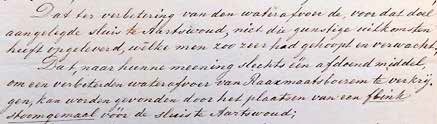 Dat ter verbetering van den waterafvoer de, voor dat doel
aangelegde sluis te Aartswoud, niet die gunstige uitkomsten
heeft opgeleverd, welke men zoo zeer had gehoopt en verwacht;
Dat, naar hunne meening slechts één afdoend middel,
om een verbeterden waterafvoer van Raaxmaatsboezem te verkrij-
gen, kan worden gevonden door het plaatsen van een flink
stoomgemaal vóór de sluis te Aartswoud;